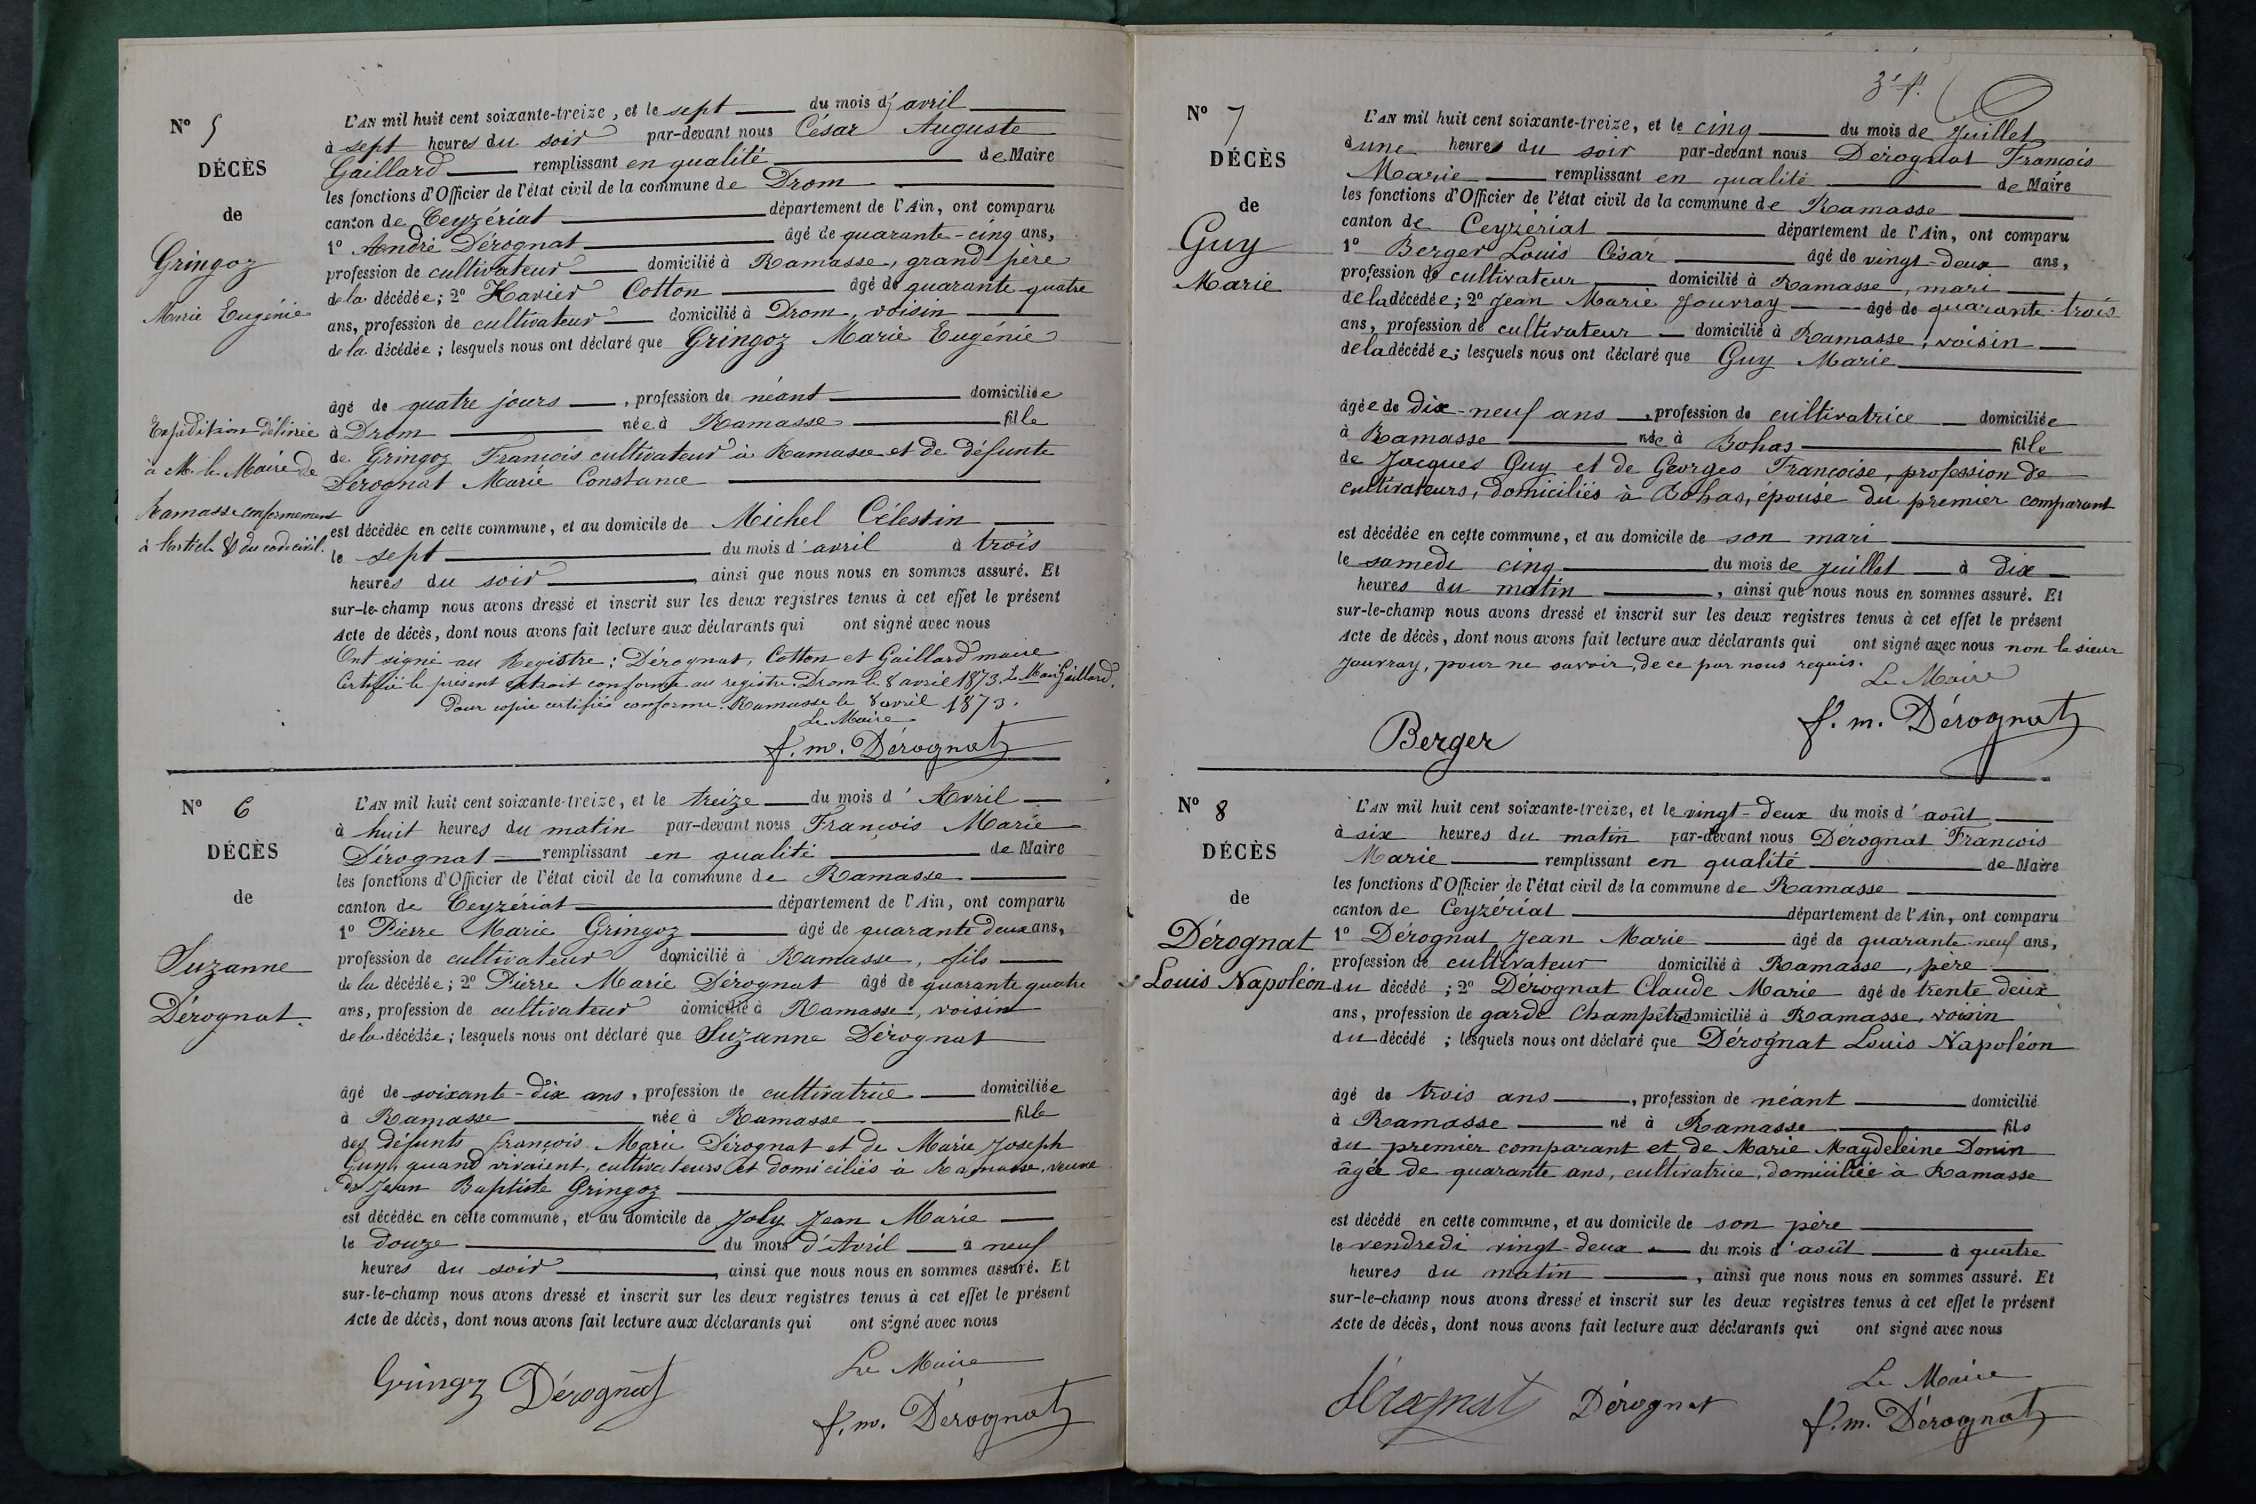 N° 5
DÉCÈS
de
Gringoz
Marie Eugénie
Expédition délivrée
à M. le Maire de
Ramasse conformément
à l'article 80 du code civil.
L'AN mil huit cent soixante-treize, et le sept du mois d'avril
à sept heures du soir par-devant nous César Auguste
Gaillard remplissant en qualité de Maire
les fonctions d'Officier de l'état civil de la commune de Drom
canton de Ceyzériat département de l'Ain, ont comparu
1° André Dérognat âgé de quarante-cinq ans,
profession de cultivateur domicilié à Ramasse, grand-père
de la décédée; 2° Xavier Cotton âgé de quarante quatre
ans, profession de cultivateur domicilié à Drom, voisin
de la décédée; lesquels nous ont déclaré que Gringoz Marie Eugénie
âgé de quatre jours, profession de néant domiciliée
à Drom née à Ramasse fille
de Gringoz François cultivateur à Ramasse et de défunte
Dérognat Marie Constance
est décédée en cette commune, et au domicile de Michel Célestin
le sept du mois d'avril à trois
heures du soir, ainsi que nous nous en sommes assuré. Et
sur-le-champ nous avons dressé et inscrit sur les deux registres tenus à cet effet le présent
Acte de décès, dont nous avons fait lecture aux déclarants qui ont signé avec nous
Ont signé au Registre: Dérognat, Cotton et Gaillard maire
Certifié le présent extrait conforme au registre. Drom le 8 avril 1873. Le Maire Gaillard.
Pour copie certifiée conforme. Ramasse le 8 avril 1873.
Le Maire
f. m. Dérognat
N° 6
DÉCÈS
de
Suzanne
Dérognat.
L'AN mil huit cent soixante-treize, et le treize du mois d'Avril
à huit heures du matin par-devant nous François Marie
Dérognat remplissant en qualité de Maire
les fonctions d'Officier de l'état civil de la commune de Ramasse
canton de Ceyzériat département de l'Ain, ont comparu
1° Pierre Marie Gringoz âgé de quarante deux ans,
profession de cultivateur domicilié à Ramasse, fils
de la décédée; 2° Pierre Marie Dérognat âgé de quarante quatre
ans, profession de cultivateur domicilié à Ramasse, voisin
de la décédée; lesquels nous ont déclaré que Suzanne Dérognat
âgé de soixante-dix ans, profession de cultivatrice domiciliée
à Ramasse née à Ramasse fille
des défunts François Marie Dérognat et de Marie Joseph
Guy, quand vivaient, cultivateurs et domiciliés à Ramasse, veuve
de Jean Baptiste Gringoz
est décédée en cette commune, et au domicile de Joly Jean Marie
le douze du mois d'Avril à neuf
heures du soir, ainsi que nous nous en sommes assuré. Et
sur-le-champ nous avons dressé et inscrit sur les deux registres tenus à cet effet le présent
Acte de décès, dont nous avons fait lecture aux déclarants qui ont signé avec nous
Le Maire
Gringoz Dérognat
f. m. Dérognat
N° 7
DÉCÈS
de
Guy
Marie
L'AN mil huit cent soixante-treize, et le cinq du mois de Juillet
à une heures du soir par-devant nous Dérognat François
Marie remplissant en qualité de Maire
les fonctions d'Officier de l'état civil de la commune de Ramasse
canton de Ceyzériat département de l'Ain, ont comparu
1° Berger Louis César âgé de vingt-deux ans,
profession de cultivateur domicilié à Ramasse, mari
de la décédée; 2° Jean Marie Jouvray âgé de quarante-trois
ans, profession de cultivateur domicilié à Ramasse, voisin
de la décédée; lesquels nous ont déclaré que Guy Marie
âgée de dix-neuf ans, profession de cultivatrice domiciliée
à Ramasse née à Bohas fille
de Jacques Guy et de Georges Françoise, profession de
cultivateurs, domiciliés à Bohas, épouse du premier comparant
est décédée en cette commune, et au domicile de son mari
le samedi cinq du mois de Juillet à dix
heures du matin, ainsi que nous nous en sommes assuré. Et
sur-le-champ nous avons dressé et inscrit sur les deux registres tenus à cet effet le présent
Acte de décès, dont nous avons fait lecture aux déclarants qui ont signé avec nous non le sieur
Jouvray, pour ne savoir, de ce par nous requis.
Le Maire
Berger
f. m. Dérognat
N° 8
DÉCÈS
de
Dérognat
Louis Napoléon
L'AN mil huit cent soixante-treize, et le vingt-deux du mois d'août
à six heures du matin par-devant nous Dérognat François
Marie remplissant en qualité de Maire
les fonctions d'Officier de l'état civil de la commune de Ramasse
canton de Ceyzériat département de l'Ain, ont comparu
1° Dérognat Jean Marie âgé de quarante-neuf ans,
profession de cultivateur domicilié à Ramasse, père
du décédé; 2° Dérognat Claude Marie âgé de trente deux
ans, profession de garde champêtre domicilié à Ramasse, voisin
du décédé; lesquels nous ont déclaré que Dérognat Louis Napoléon
âgé de trois ans, profession de néant domicilié
à Ramasse né à Ramasse fils
du premier comparant et de Marie Magdeleine Donin
âgée de quarante ans, cultivatrice, domiciliée à Ramasse
est décédé en cette commune, et au domicile de son père
le vendredi vingt-deux du mois d'août à quatre
heures du matin, ainsi que nous nous en sommes assuré. Et
sur-le-champ nous avons dressé et inscrit sur les deux registres tenus à cet effet le présent
Acte de décès, dont nous avons fait lecture aux déclarants qui ont signé avec nous
Le Maire
Dérognat Dérognat
f. m. Dérognat